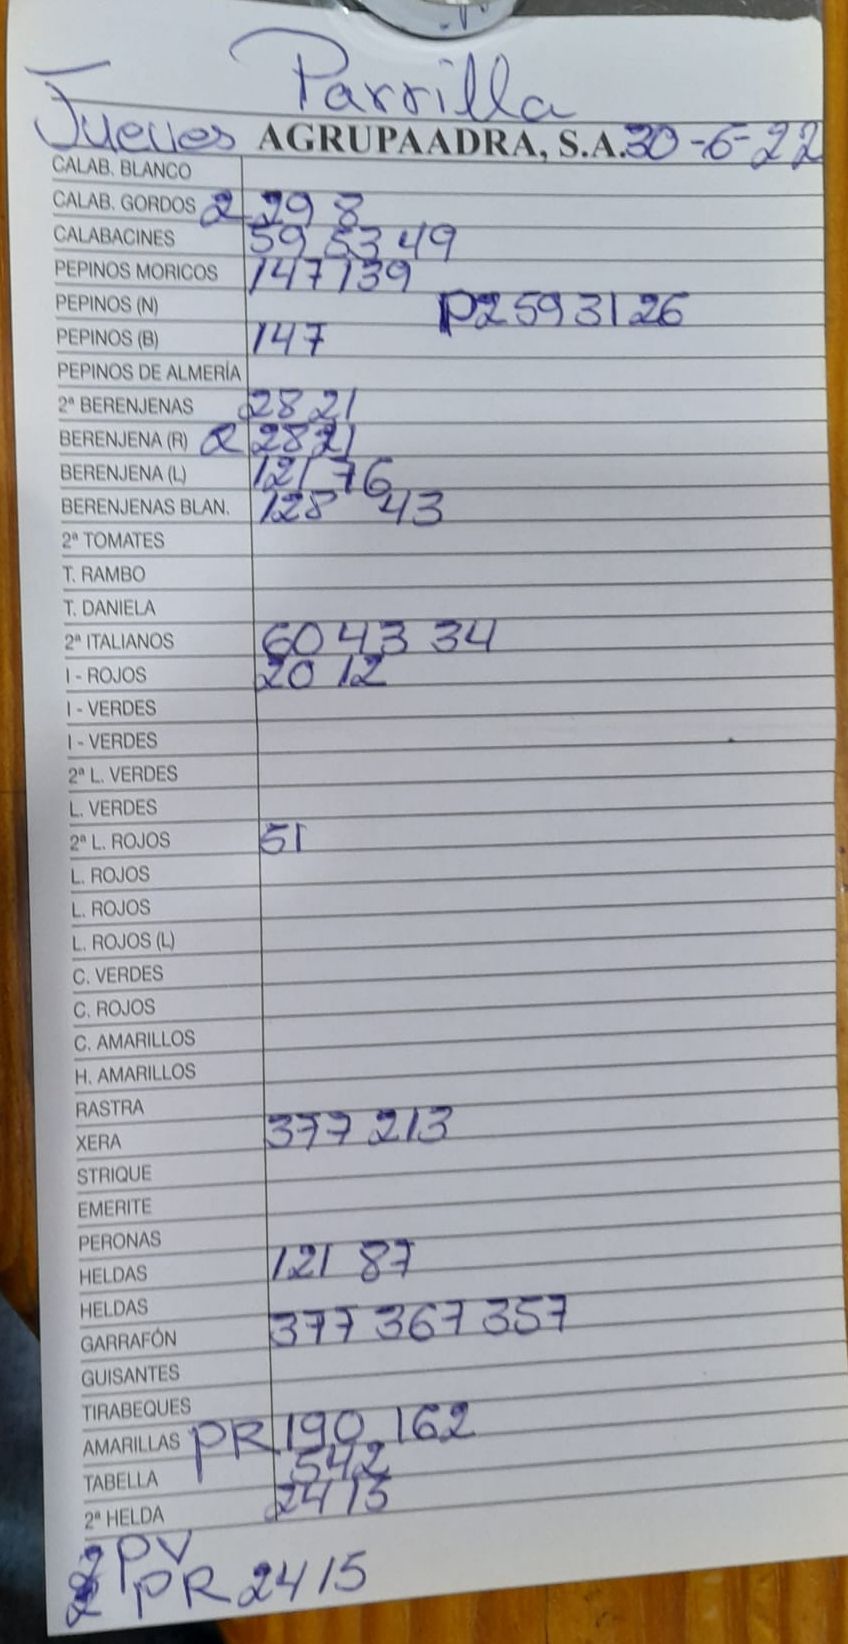 Parrilla
Jueves AGRUPAADRA, S.A. 30-6-22
CALAB. BLANCO
CALAB. GORDOS 2 29 8
CALABACINES 59 53 49
PEPINOS MORICOS 147 139
PEPINOS (N) P2 59 31 26
PEPINOS (B) 147
PEPINOS DE ALMERÍA
2ª BERENJENAS 28 21
BERENJENA (R) 2 28 21
BERENJENA (L) 121 76
BERENJENAS BLAN. 128 43
2ª TOMATES
T. RAMBO
T. DANIELA
2ª ITALIANOS 60 43 34
I - ROJOS 20 12
I - VERDES
I - VERDES
2ª L. VERDES
L. VERDES
2ª L. ROJOS 51
L. ROJOS
L. ROJOS
L. ROJOS (L)
C. VERDES
C. ROJOS
C. AMARILLOS
H. AMARILLOS
RASTRA
XERA 377 213
STRIQUE
EMERITE
PERONAS
HELDAS 121 87
HELDAS
GARRAFÓN 377 367 357
GUISANTES
TIRABEQUES
AMARILLAS PR 190 162
TABELLA 542
2ª HELDA 24 15
2 PV
2 PR 24 15